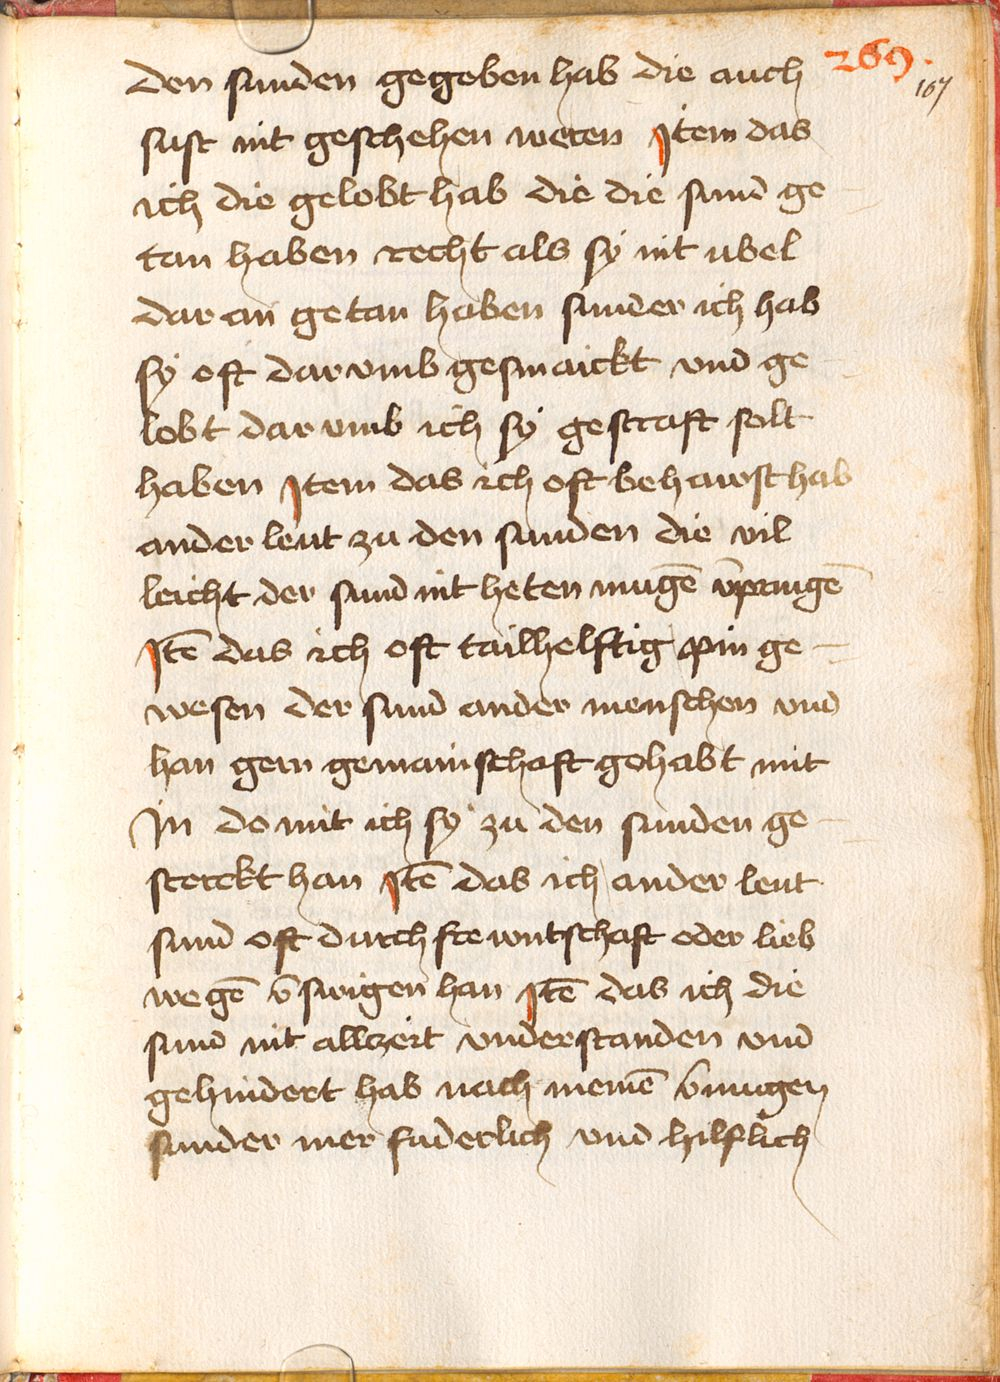 269.
167
den sunden gegeben hab die auch
sust nit geschehen weren Item das
ich die gelobt hab die die sund ge
tan haben recht als sy nit ubel
dar an getan haben sunder ich hab
sy oft dar vmb gesmaickt vnd ge
lobt dar vmb ich sy gestraft solt
haben Item das ich oft behawst hab
ander leut zu den sunden die vil
leicht der sund nit heten mugē
Itē das ich oft tailhelftig pin ge
wesen der sund ander menschen vnd
han gern gemainschaft gehabt mit
In do mit ich sy zu den sunden ge
sterckt han Itē das ich ander leut
sund oft durch frewntschaft oder lieb
wegē v̄swigen han Itē das ich die
sund nit allczeit vnderstanden vnd
gehindert hab nach meinē v̄mugen
sunder mer fuderlich vnd hilflich